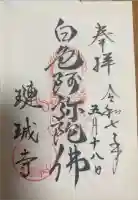 奉拝 令和七年
五月十八日
白色阿弥陀佛
璉珹寺